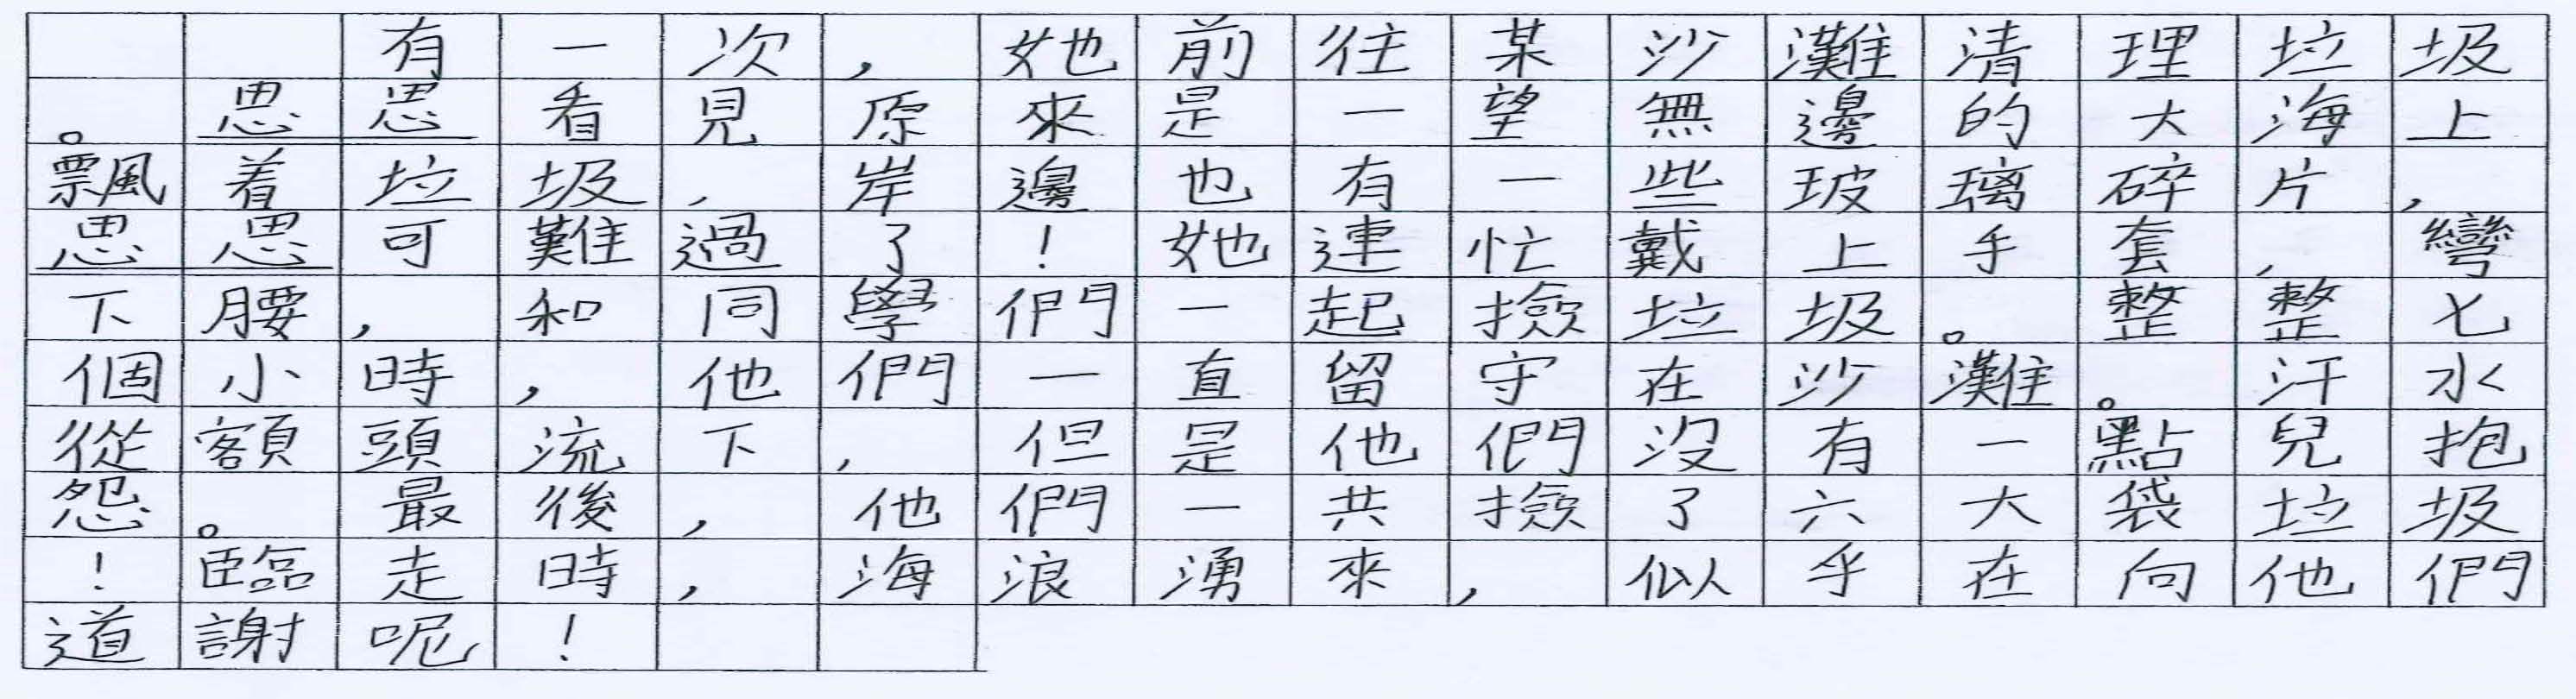 有一次，她前往某沙灘清理垃圾
。思思看見原來是一望無邊的大海上
飄着垃圾，岸邊也有一些玻璃碎片，
思思可難過了！她連忙戴上手套，彎
下腰，和同學們一起撿垃圾。整整七
個小時，他們一直留守在沙灘。汗水
從額頭流下，但是他們沒有一點兒抱
怨。最後，他們一共撿了六大袋垃圾
！臨走時，海浪湧來，似乎在向他們
道謝呢！